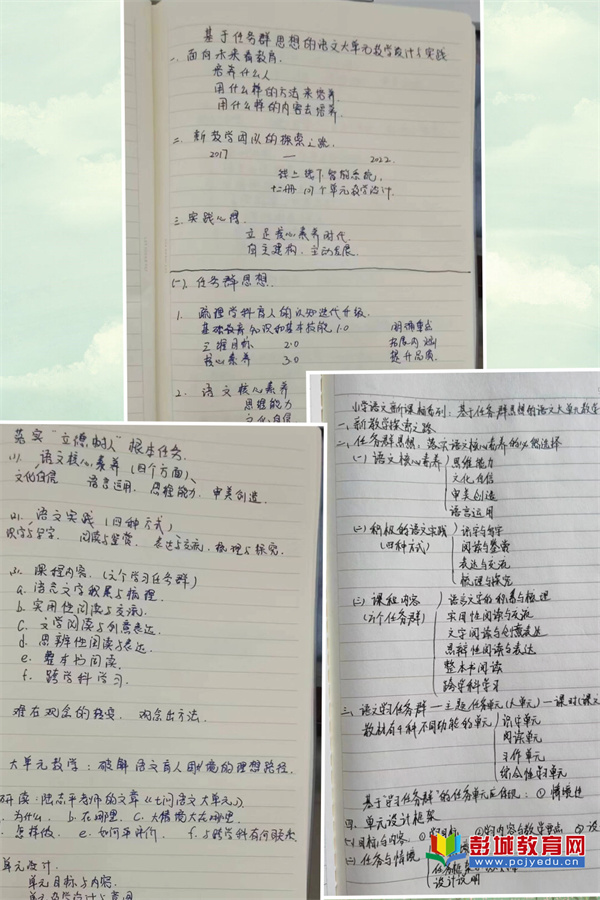 基于任务群思想的语文大单元教学设计与实践
一、面向未来看教育.
培养什么人
用什么样的方法来培养.
用什么样的内容去培养.
二、新教学团队的探索之旅.
2017 — 2022.
十二册 个单元教学设计.
三、实践心得.
立足核心素养时代
自主建构,主动发展.
(一).任务群思想.
1. 梳理学科育人的认知迭代升级.
基础教育知识和基本技能 1.0 明确重点
三维目标 2.0 拓展内涵
核心素养 3.0 提升品质.
2. 语文核心素养
思维能力
文化自信
落实“立德树人”根本任务.
(1). 语文核心素养(四个方面)
文化自信 语言运用. 思维能力. 审美创造.
(2). 语文实践(四种方式)
识字与写字. 阅读与鉴赏. 表达与交流, 梳理与探究.
课程内容.(六个学习任务群)
a. 语言文字积累与梳理.
b. 实用性阅读与交流.
c. 文学阅读与创意表达.
d. 思辨性阅读与表达.
e. 整本书阅读.
f. 跨学科学习.
难在观念的转变. 观念出方法.
大单元教学:破解语文育人困境的理想路径.
研读:陆志平老师的文章《七问语文大单元》.
为什么. b.在哪里. c.大情境大在哪里.
怎样做. e.如何评价. f.与跨学科有何联系
单元设计.
单元目标与内容.
小学语文新课标系列:基于任务群思想的语文大单元教学
一、新教学探索之路
二、任务群思想,落实语文核心素养的必然选择
(一)语文核心素养 思维能力
文化自信
审美创造
语言运用
(二)积极的语文实践 识字与写字
(四种方式) 阅读与鉴赏
表达与交流
梳理与探究
(三)课程内容 语言文字的积累与梳理
(六个任务群) 实用性阅读与交流
文学阅读与创意表达
思辨性阅读与表达
整本书阅读
跨学科学习
三、语文的任务群—主题任务单元(大单元)—课时(课文
教材有4种不同功能的单元 识字单元
阅读单元
习作单元
综合性学习单元
基于“学习任务群”的任务单元
四、单元设计框架
(一)目标与内容
(二)任务与情境
设计说明
彭城教育网
www.pcjyedu.cn